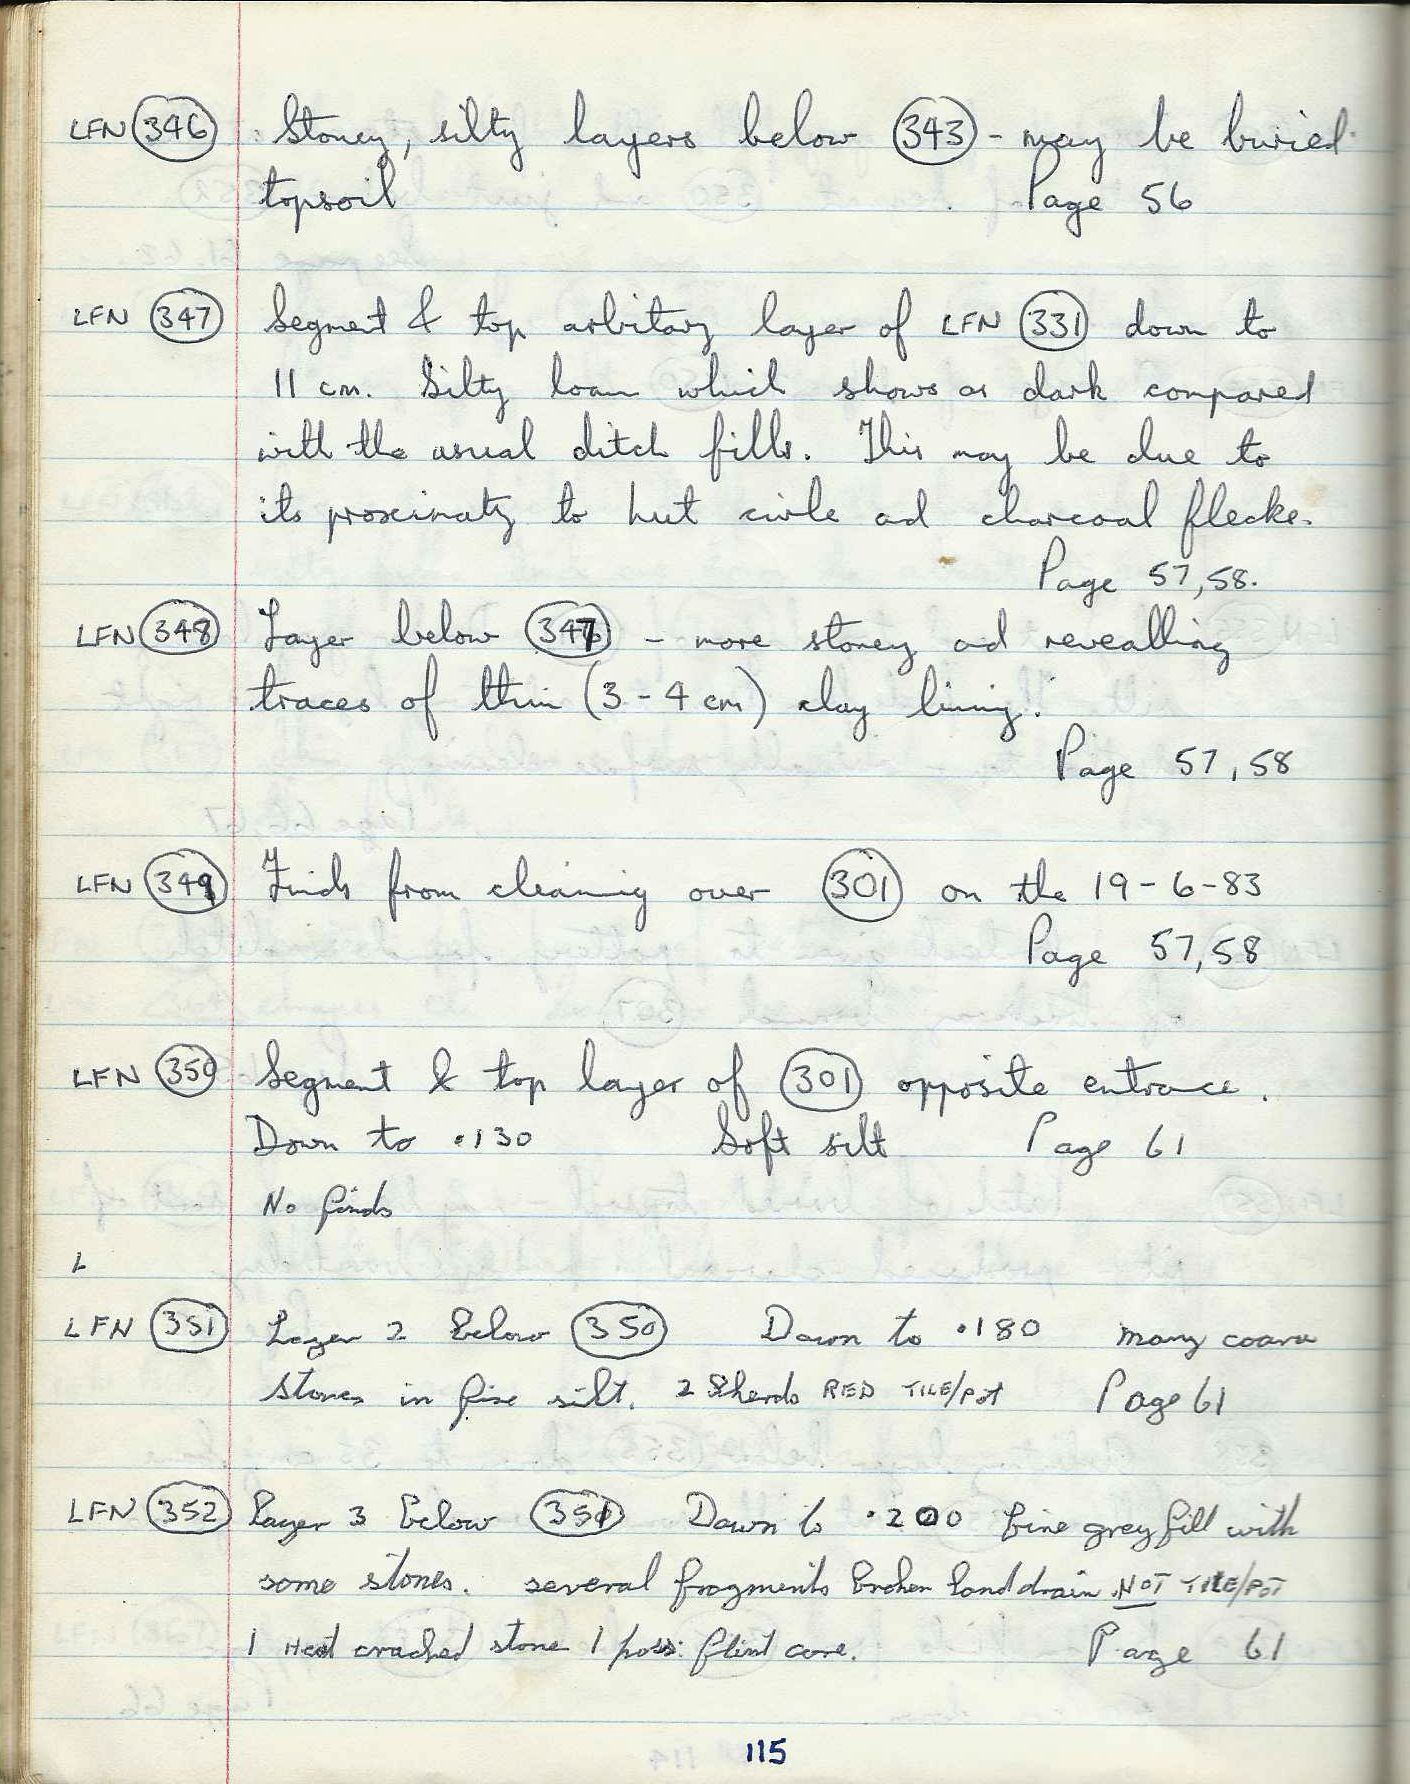 LFN 346 : Stoney, silty layers below 343 - may be buried
topsoil Page 56
LFN 347 Segment & top arbitary layer of LFN 331 down to
11 cm. Silty loam which shows as dark compared
with the usual ditch fills. This may be due to
its proximaty to hut circle and charcoal flecks.
Page 57,58.
LFN 348 Layer below 347 - more stoney and revealling
traces of thin (3-4 cm) clay lining.
Page 57,58
LFN 349 Finds from cleaning over 301 on the 19-6-83
Page 57,58
LFN 350 Segment & top layer of 301 opposite entrance.
Down to .130 Soft silt Page 61
No finds
L
LFN 351 Layer 2 below 350 Down to .180 many coarse
stones in fine silt. 2 Sherds RED TILE/POT Page 61
LFN 352 Layer 3 below 351 Down to .200 fine grey fill with
some stones. several fragments broken land drain NOT TILE/POT
1 Heat cracked stone 1 poss: flint core. Page 61
115